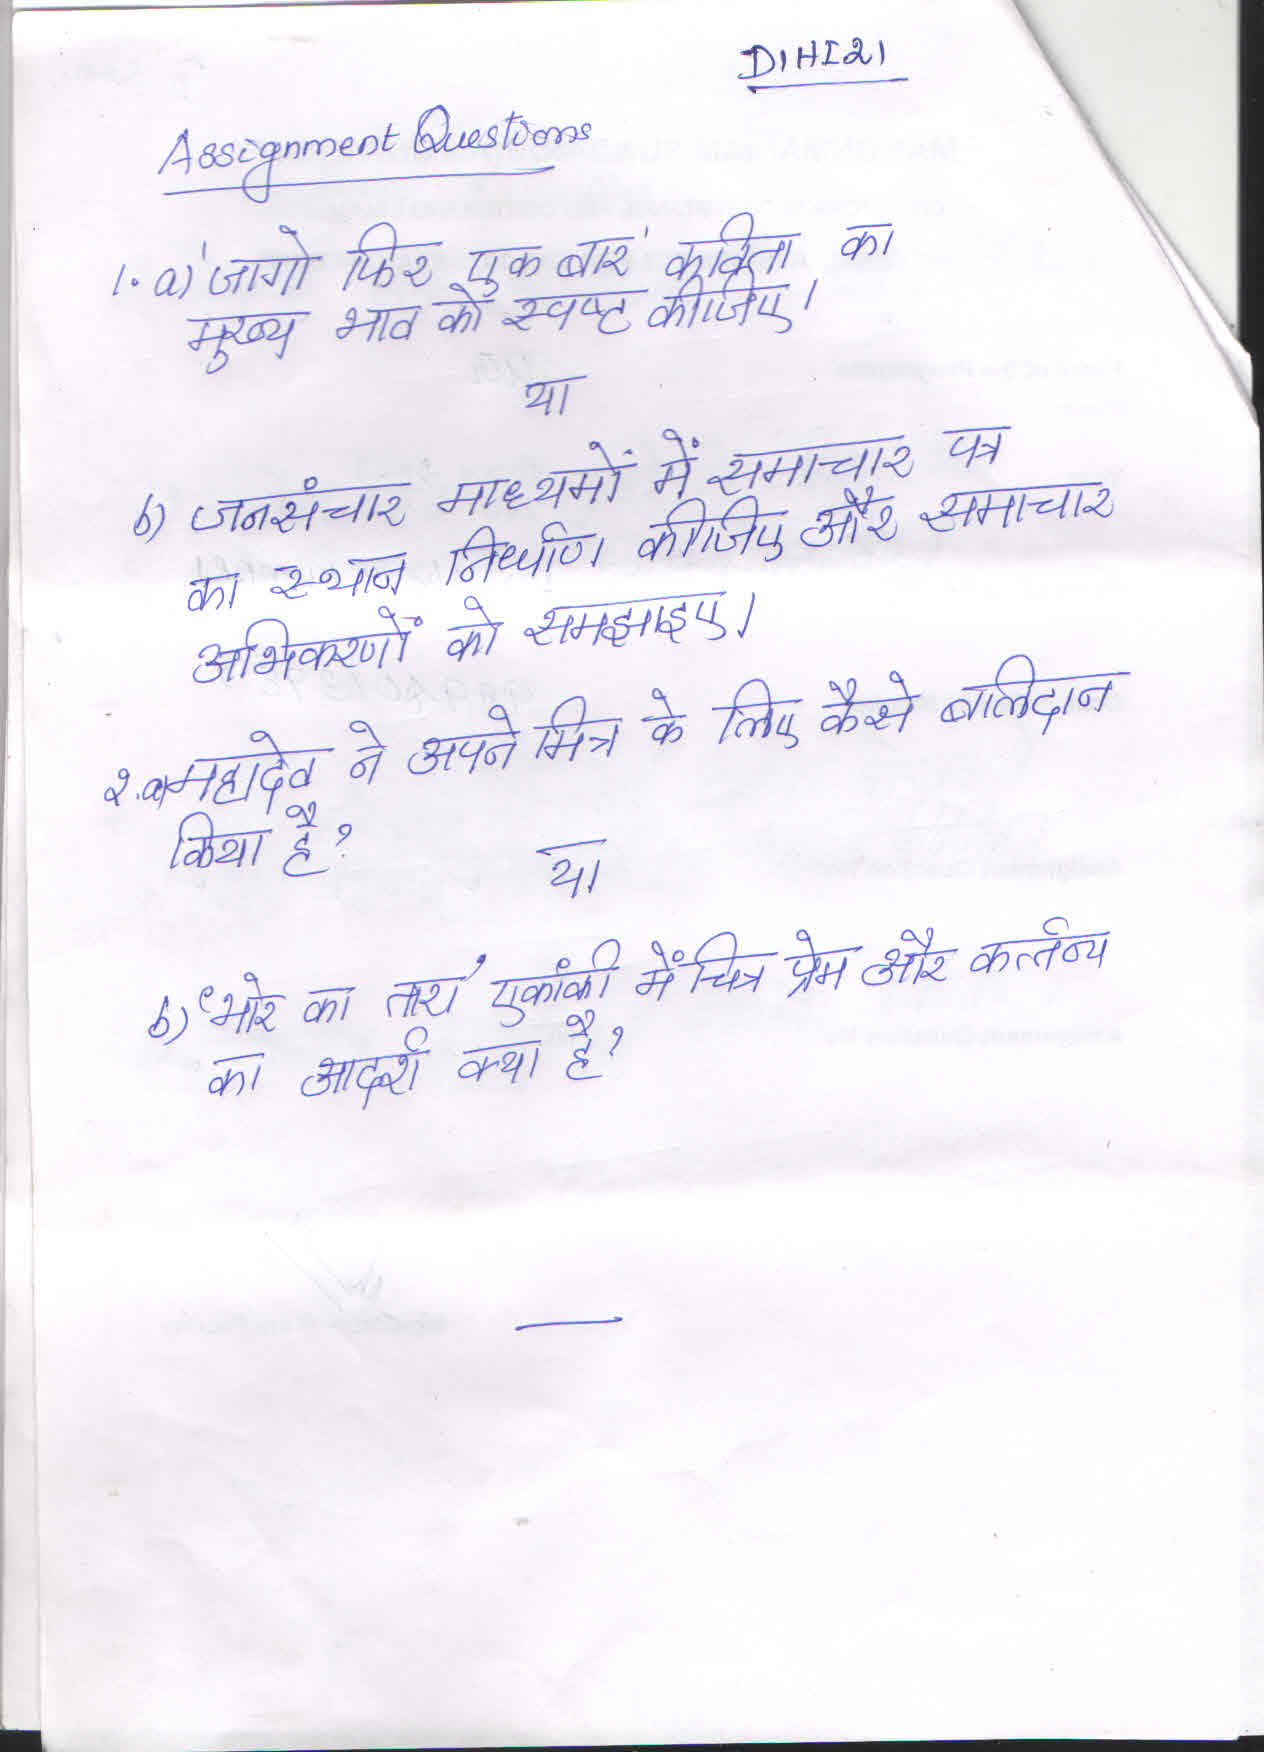 D1HI21
Assignment Questions
1. a) 'जागो फिर एक बार' कविता का
मुख्य भाव को स्पष्ट कीजिए।
या
b) जनसंचार माध्यमों में समाचार पत्र
का स्थान निर्धाण कीजिए और समाचार
अभिकरणों को समझाइए।
2. a) महादेव ने अपने मित्र के लिए कैसे बालिदान
किया है?
या
b) 'भोर का तारा' एकांकी में चित्र प्रेम और कर्त्तव्य
का आदर्श क्या है?